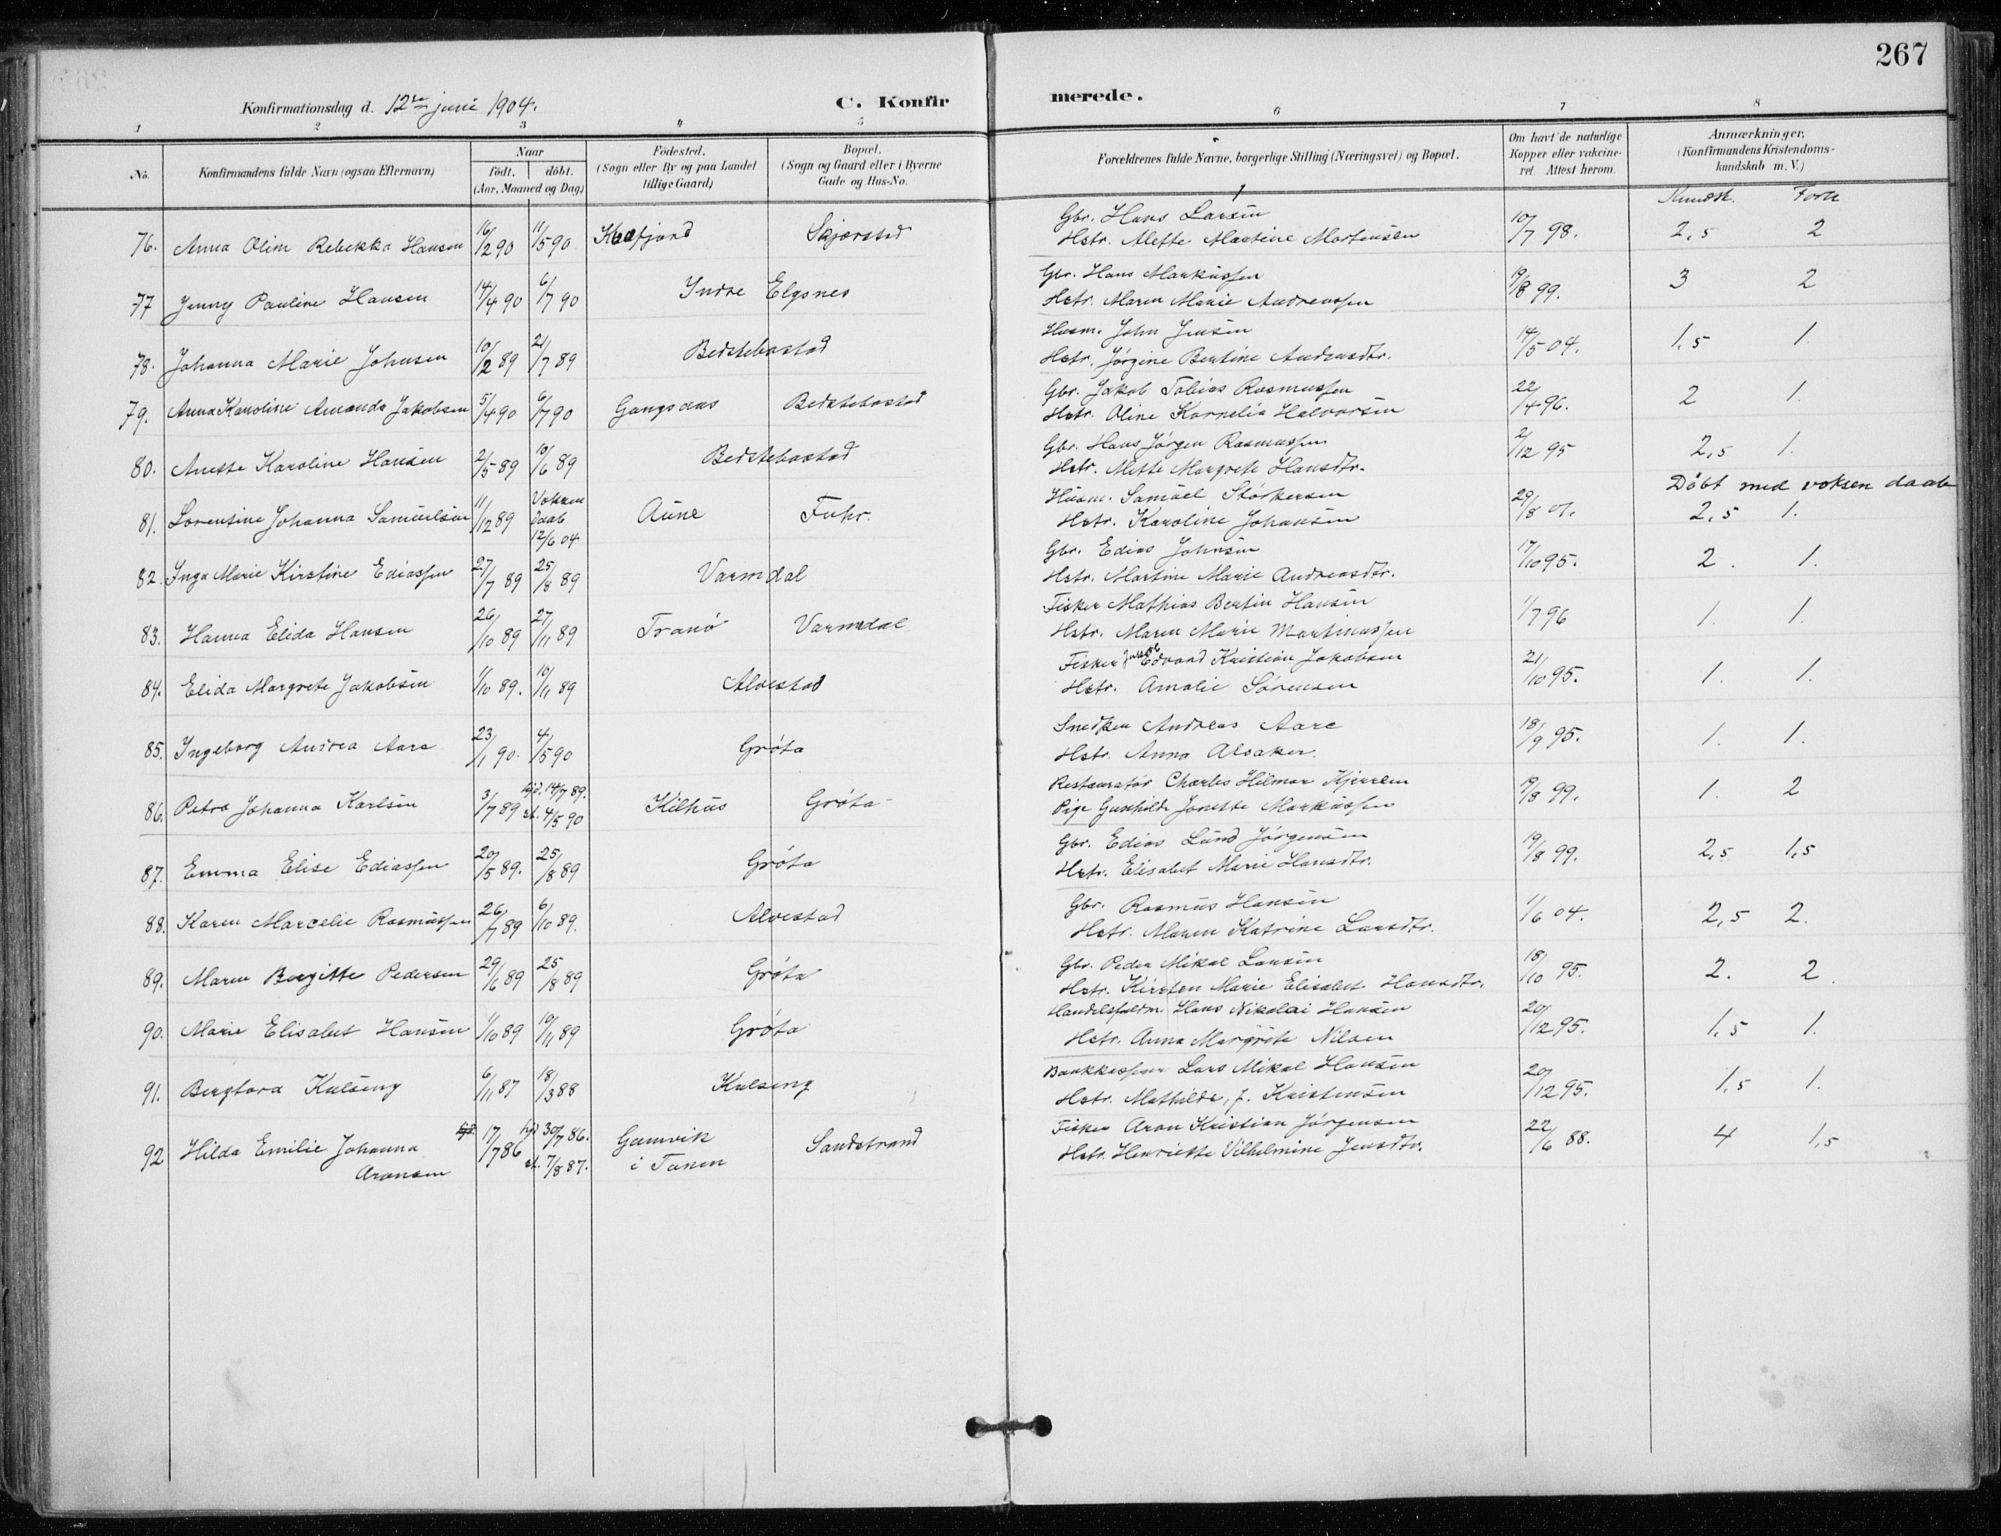 267
Konfirmationsdag d. 12te juni 1904.
C. Konfirmerede.
1 2 3 4 5 6 7 8
No.
Konfirmandens fulde Navn (ogsaa Efternavn)
Naar
födt. döbt.
(Aar, Maaned og Dag)
Födested.
(Sogn eller By og paa Landet
tillige Gaard)
Bopæl.
(Sogn og Gaard eller i Byerne
Gade og Hus-No.
Forældrenes fulde Navne, borgerlige Stilling (Næringsvei) og Bopæl.
Om havt de naturlige
Kopper eller vakcine-
ret. Attest herom.
Anmærkninger,
(Konfirmandens Kristendoms-
kundskab m. V.)
Kundsk. Forh
76. Anna Olim Rebekka Hansen 16/2 90 11/5 90 Kvæfjord Skjærstad
Gbr. Hans Larsen
Hstr. Alette Martine Mortensen 10/7 98. 2,5 2
77 Jenny Pauline Hansen 14/4 90 6/7 90 Indre Elgsnes
Gbr. Hans Markussen
Hstr. Maren Marie Andreassen 19/8 99. 3 2
78. Johanna Marie Johnsen 10/2 89 21/7 89 Bedstebostad
Husm. John Jensen
Hstr. Jørgine Bertine Andreasdtr. 14/5 04. 1,5 1.
79. Anna Karoline Amanda Jakobsen 5/4 90 6/7 90 Gangsaas Bedstebostad
Gbr. Jakob Tobias Rasmussen
Hstr. Oline Kornelia Halvorsen 22/4 96. 2 1.
80. Anette Karoline Hansen 2/5 89 10/6 89 Bedstebostad
Gbr. Hans Jørgen Rasmussen
Hstr. Mette Margrete Hansdtr. 2/12 95 2,5 1.
81. Lorentine Johanna Samuelsen 11/12 89 Voksen daab 12/6 04 Aune Fuhr.
Husm. Samuel Størkersen
Hstr. Karoline Johansen 29/8 01. 2,5 1.
Döbt med voksen daab
82. Inga Marie Kirstine Ediassen 27/7 89 25/8 89 Varmdal
Gbr. Edias Johnsen
Hstr. Martine Marie Andreasdtr. 17/10 95. 2. 1.
83. Hanna Elida Hansen 26/10 89 27/11 89 Tranö Varmdal
Fisker Mathias Bertin Hansen
Hstr. Maren Marie Martinussen 1/7 96 1. 1.
84. Elida Margrete Jakobsen 1/10 89. 10/11 89 Alvestad
Fisker Edvard Kristian Jakobsen
Hstr. Amalie Sørensen 21/10 95. 1. 1.
85. Ingeborg Andrea Aare 23/1 90. 4/5 90 Grøta
Snedker Andreas Aare
Hstr. Anna Alsaker. 18/9 95. 1. 1.
86. Petra Johanna Karlsen 3/7 89 hjd. 14/7 89. st. 4/5 90 Kilhus Grøta
Restauratør Charles Hilmar Kjerrem
Pige Gunhilda Jonette Markussen 19/8 99. 1. 2
87. Emma Elise Ediassen 20/5 89. 25/8 89 Grøta
Gbr. Edias Lund Jørgensen
Hstr. Elisabet Marie Hansdtr. 19/8 99. 2,5 1,5
88. Karen Marcelie Rasmussen 26/7 89 6/10 89. Alvestad
Gbr. Rasmus Hansen
Hstr. Maren Katrine Larsdtr. 1/6 04. 2,5 2.
89. Maren Bergitte Pedersen 29/6 89 25/8 89 Grøta
Gbr. Peder Mikal Larsen
Hstr. Kirsten Marie Elisabet Hansdtr. 18/10 95. 2. 2.
90. Marie Elisabet Hansen 1/10 89 10/11 89 Grøta
Handelsfuldm Hans Nikolai Hansen
Hstr. Anna Margrete Nilsen 20/12 95. 1,5 1.
91. Bergtora Kulseng 6/11 87 18/3 88 Kulseng
Bankkasserer Lars Mikal Hansen
Hstr. Mathilde, f. Kristensen 20/12 95. 1,5 1.
92 Hilda Emilie Johanna hjd. 17/7 86 hjd 30/7 86. Gamvik Sandstrand
Aronsen st. 7/8 87. i Tanen
Fisker Aron Kristian Jørgensen
Hstr. Henriette Vilhelmine Jensdtr. 22/6 88. 4 1,5